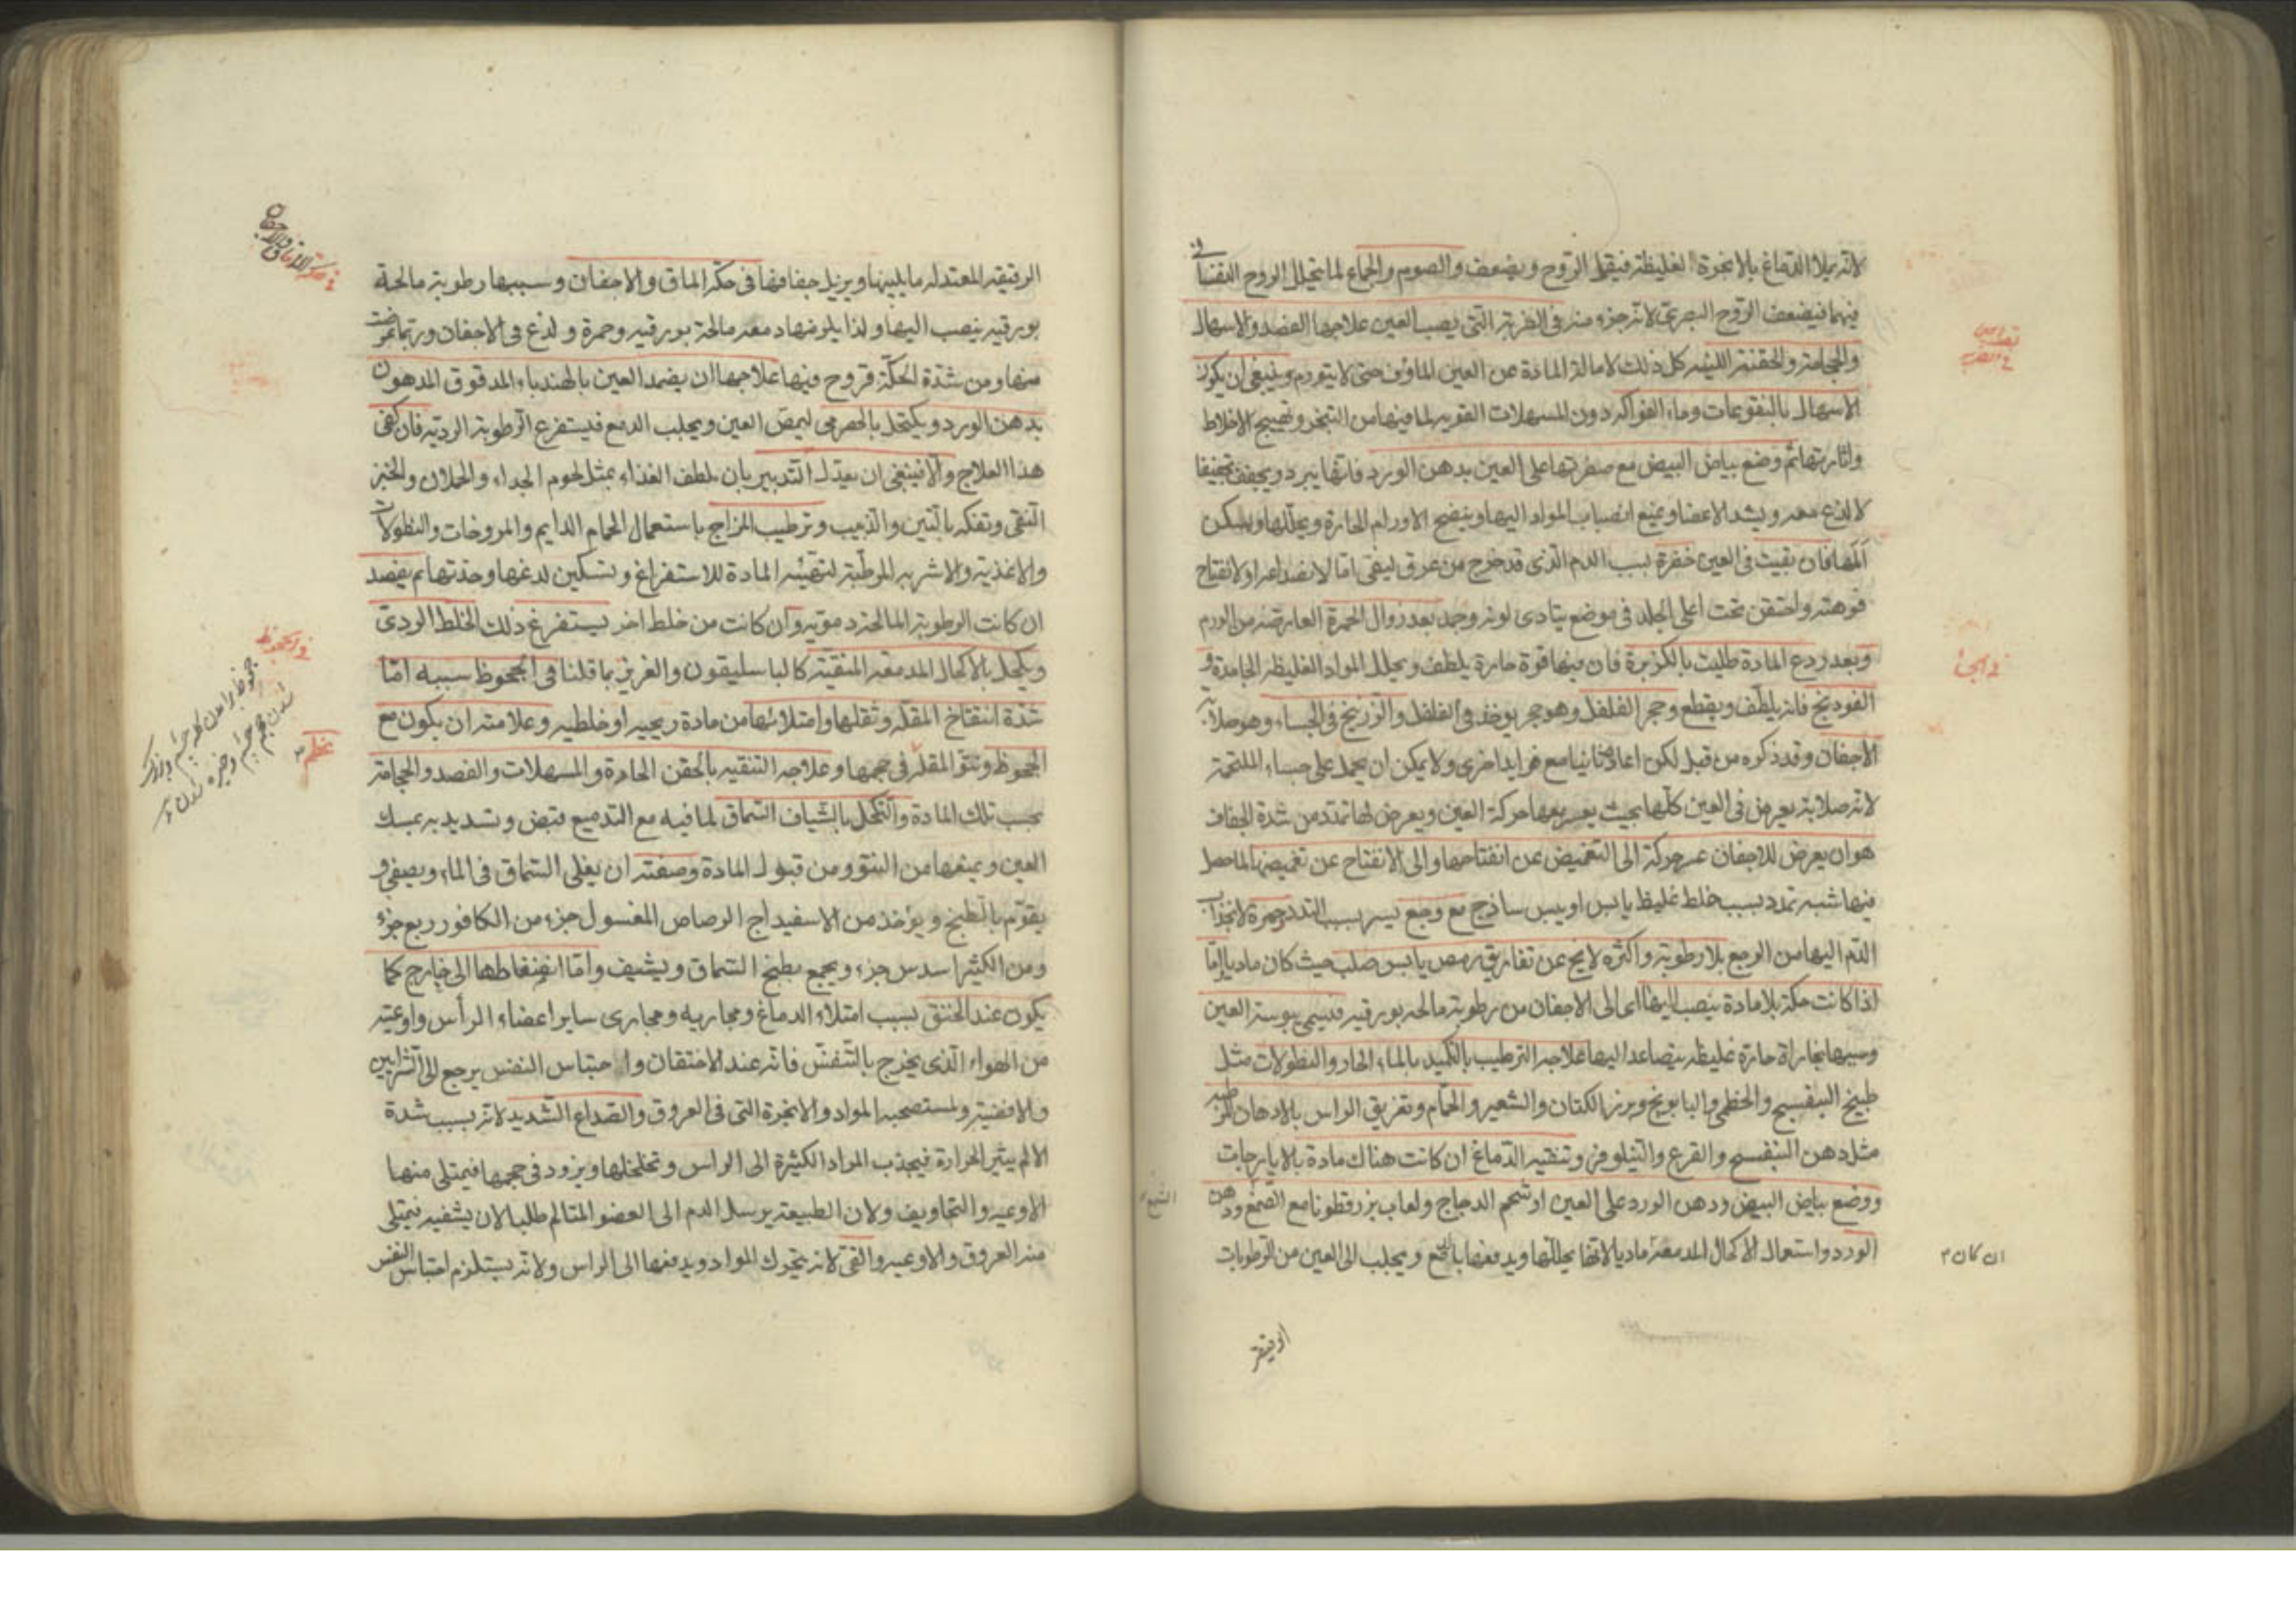 لانه يملا الدماغ بالابخرة الغليظة فيقل الروح ويضعف والصوم والجماع لما يتحلل الروح النفسانى
فيهما فيضعف الروح البصرى لانه جزء منه فى الطرفة التى يصيب العين علاجها الفصد والاسهال
والحجامة والحقنة اللينه كل ذلك لامالة المادة عن العين الماؤف حتى لا يتورم وينبغى ان يكون
الاسهال بالنقوعات وماء الفواكه دون المسهلات القويه لما فيها من التبخر وتهييج الاخلاط
واثارتها ثم وضع بياض البيض مع صفرتها على العين بدهن الورد فانها يبرد ويجفف تجفيفا
لا لذع معه ويشد الاعضا ويمنع انصباب المواد اليها وينضج الاورام الحارة ويحللها ويسكن
المها فان بقيت فى العين خضرة بسبب الدم الذى قد خرج من عرق ليفى اما لانصداعه او لانفتاح
فوهته واحتقن تحت اعلى الجلد فى موضع يتادى لونه وجد بعد زوال الحمرة العارضة من الورم
وبعد ردع المادة طليت بالكزبرة فان فيها قوة حارة يلطف ويحلل المواد الغليظه الجامدة و
الفودنج فانه يلطف ويقطع وحجر الفلفل وهو حجر يوخذ فى الفلفل والزرنيخ فى الجساء وهو صلابه
الاجفان وقد ذكره من قبل لكن اعاده ثانيا مع فوايد اخرى ولا يمكن ان يحمل على جساء الملتحمة
لانه صلابة يعرض فى العين كلها بحيث يعسر معها حركة العين ويعرض لها تمدد من شدة الجفاف
هو ان يعرض للاجفان عسر حركة الى التغميض عن انفتاحها والى الانفتاح عن تغميضها لما حصل
فيها شبه تمدد بسبب خلط غليظ يابس او يبس ساذج مع وجع يسير بسبب التمدد وحمرة لانجذاب
الدم اليها من الوجع بلا رطوبة واكثره لا يخ عن تفاريق رمص يابس صلب حيث كان ماديا واما
اذا كانت حكة بلا مادة ينصب اليها اى الى الاجفان من رطوبة مالحه بورقيه فيسمى يبوسة العين
وسببها بخاراة حارة غليظه يتصاعد اليها علاجه الترطيب بالتكميد بالماء الحار والنطولات مثل
طبيخ البنفسج والخطمى والبابونج وبزر الكتان والشعير والحمام وتغريق الراس بالادهان المرطبه
مثل دهن البنفسج والقرع والنيلوفر وتنقيه الدماغ ان كانت هناك مادة بالايارجات
ووضع بياض البيض ودهن الورد على العين او شحم الدجاج ولعاب بزر قطونا مع الصمغ ودهن
الورد واستعمال الاكحال المدمعة ماديا لانها يحللها ويدفعها بالدمع ويجلب الى العين من الرطوبات
ان كان
الرقيقه المعتدله ما يلينها ويزيل جفافها فى حكة الماق والاجفان وسببها رطوبة مالحة
بورقيه ينصب اليها ولذا يلزمها دمعه مالحة بورقيه وحمرة ولذع فى الاجفان وربما عرضت
منها ومن شدة الحكة قروح فيها علاجها ان يضمد العين بالهندباء المدقوق المدهون
بدهن الورد ويكتحل بالحصرمى ليمض العين ويجلب الدمع فيستفرغ الرطوبة الرديه فان كفى
هذا العلاج والا فينبغى ان يعدل التدبير بان يلطف الغذاء بمثل لحوم الجداء والحملان والخبز
النقى وتفكه بالتين والزبيب وترطيب المزاج باستعمال الحمام الدايم والمروخات والنطولات
والاغذية والاشربه المرطبة لتهيئه المادة للاستفراغ وتسكين لدغها وحدتها ثم يفصد
ان كانت الرطوبة المالحة دموية وان كانت من خلط اخر يستفرغ ذلك الخلط الردى
ويكحل بالاكحال المدمعه المنقية كالباسليقون والعزيزى بما قلنا فى الجحوظ سببه اما
شدة انتفاخ المقله وثقلها وامتلائها من مادة ريحيه او خلطيه وعلامته ان يكون مع
الجحوظ ونتو المقله فى حجمها وعلاجه التنقيه بالحقن الحادة والمسهلات والفصد والحجامة
بحسب تلك المادة والتكحل بالشياف السماق لما فيه مع التدميع قبض وتسديد به يمسك
العين ويمنعها من النتو ومن قبول المادة وصفته ان يغلى السماق فى الماء ويصفى و
يقوم بالطبخ ويؤخذ من الاسفيداج الرصاص المغسول جزء من الكافور ربع جزء
ومن الكثيرا سدس جزء ويجمع بطبخ السماق ويشيف واما انضغاطها الى خارج كما
يكون عند الخنق بسبب امتلاء الدماغ ومجاريه ومجارى ساير اعضاء الرأس واوعيته
من الهواء الذى يخرج بالتنفس فانه عند الاختقان واحتباس النفس يرجع الى الشرايين
والافضية ولستصحبه المواد والابخرة التى فى العروق والصداع الشديد لانه بسبب شدة
الالم يثير الحرارة فيجذب المواد الكثيرة الى الراس وتخلخلها ويزود فى حجمها فيمتلى منها
الاوعيه والتجاويف ولان الطبيعة يرسل الدم الى العضو المتالم طلبا لان يشفيه فيمتلى
منه العروق والاوعيه والقى لانه يتحرك المواد ويدفعها الى الراس ولانه يستلزم احتباس النفس